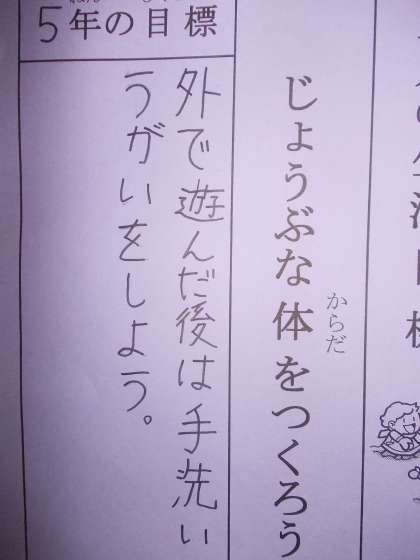 じょうぶな体をつくろう
からだ
5年の目標
外で遊んだ後は手洗い
うがいをしよう。